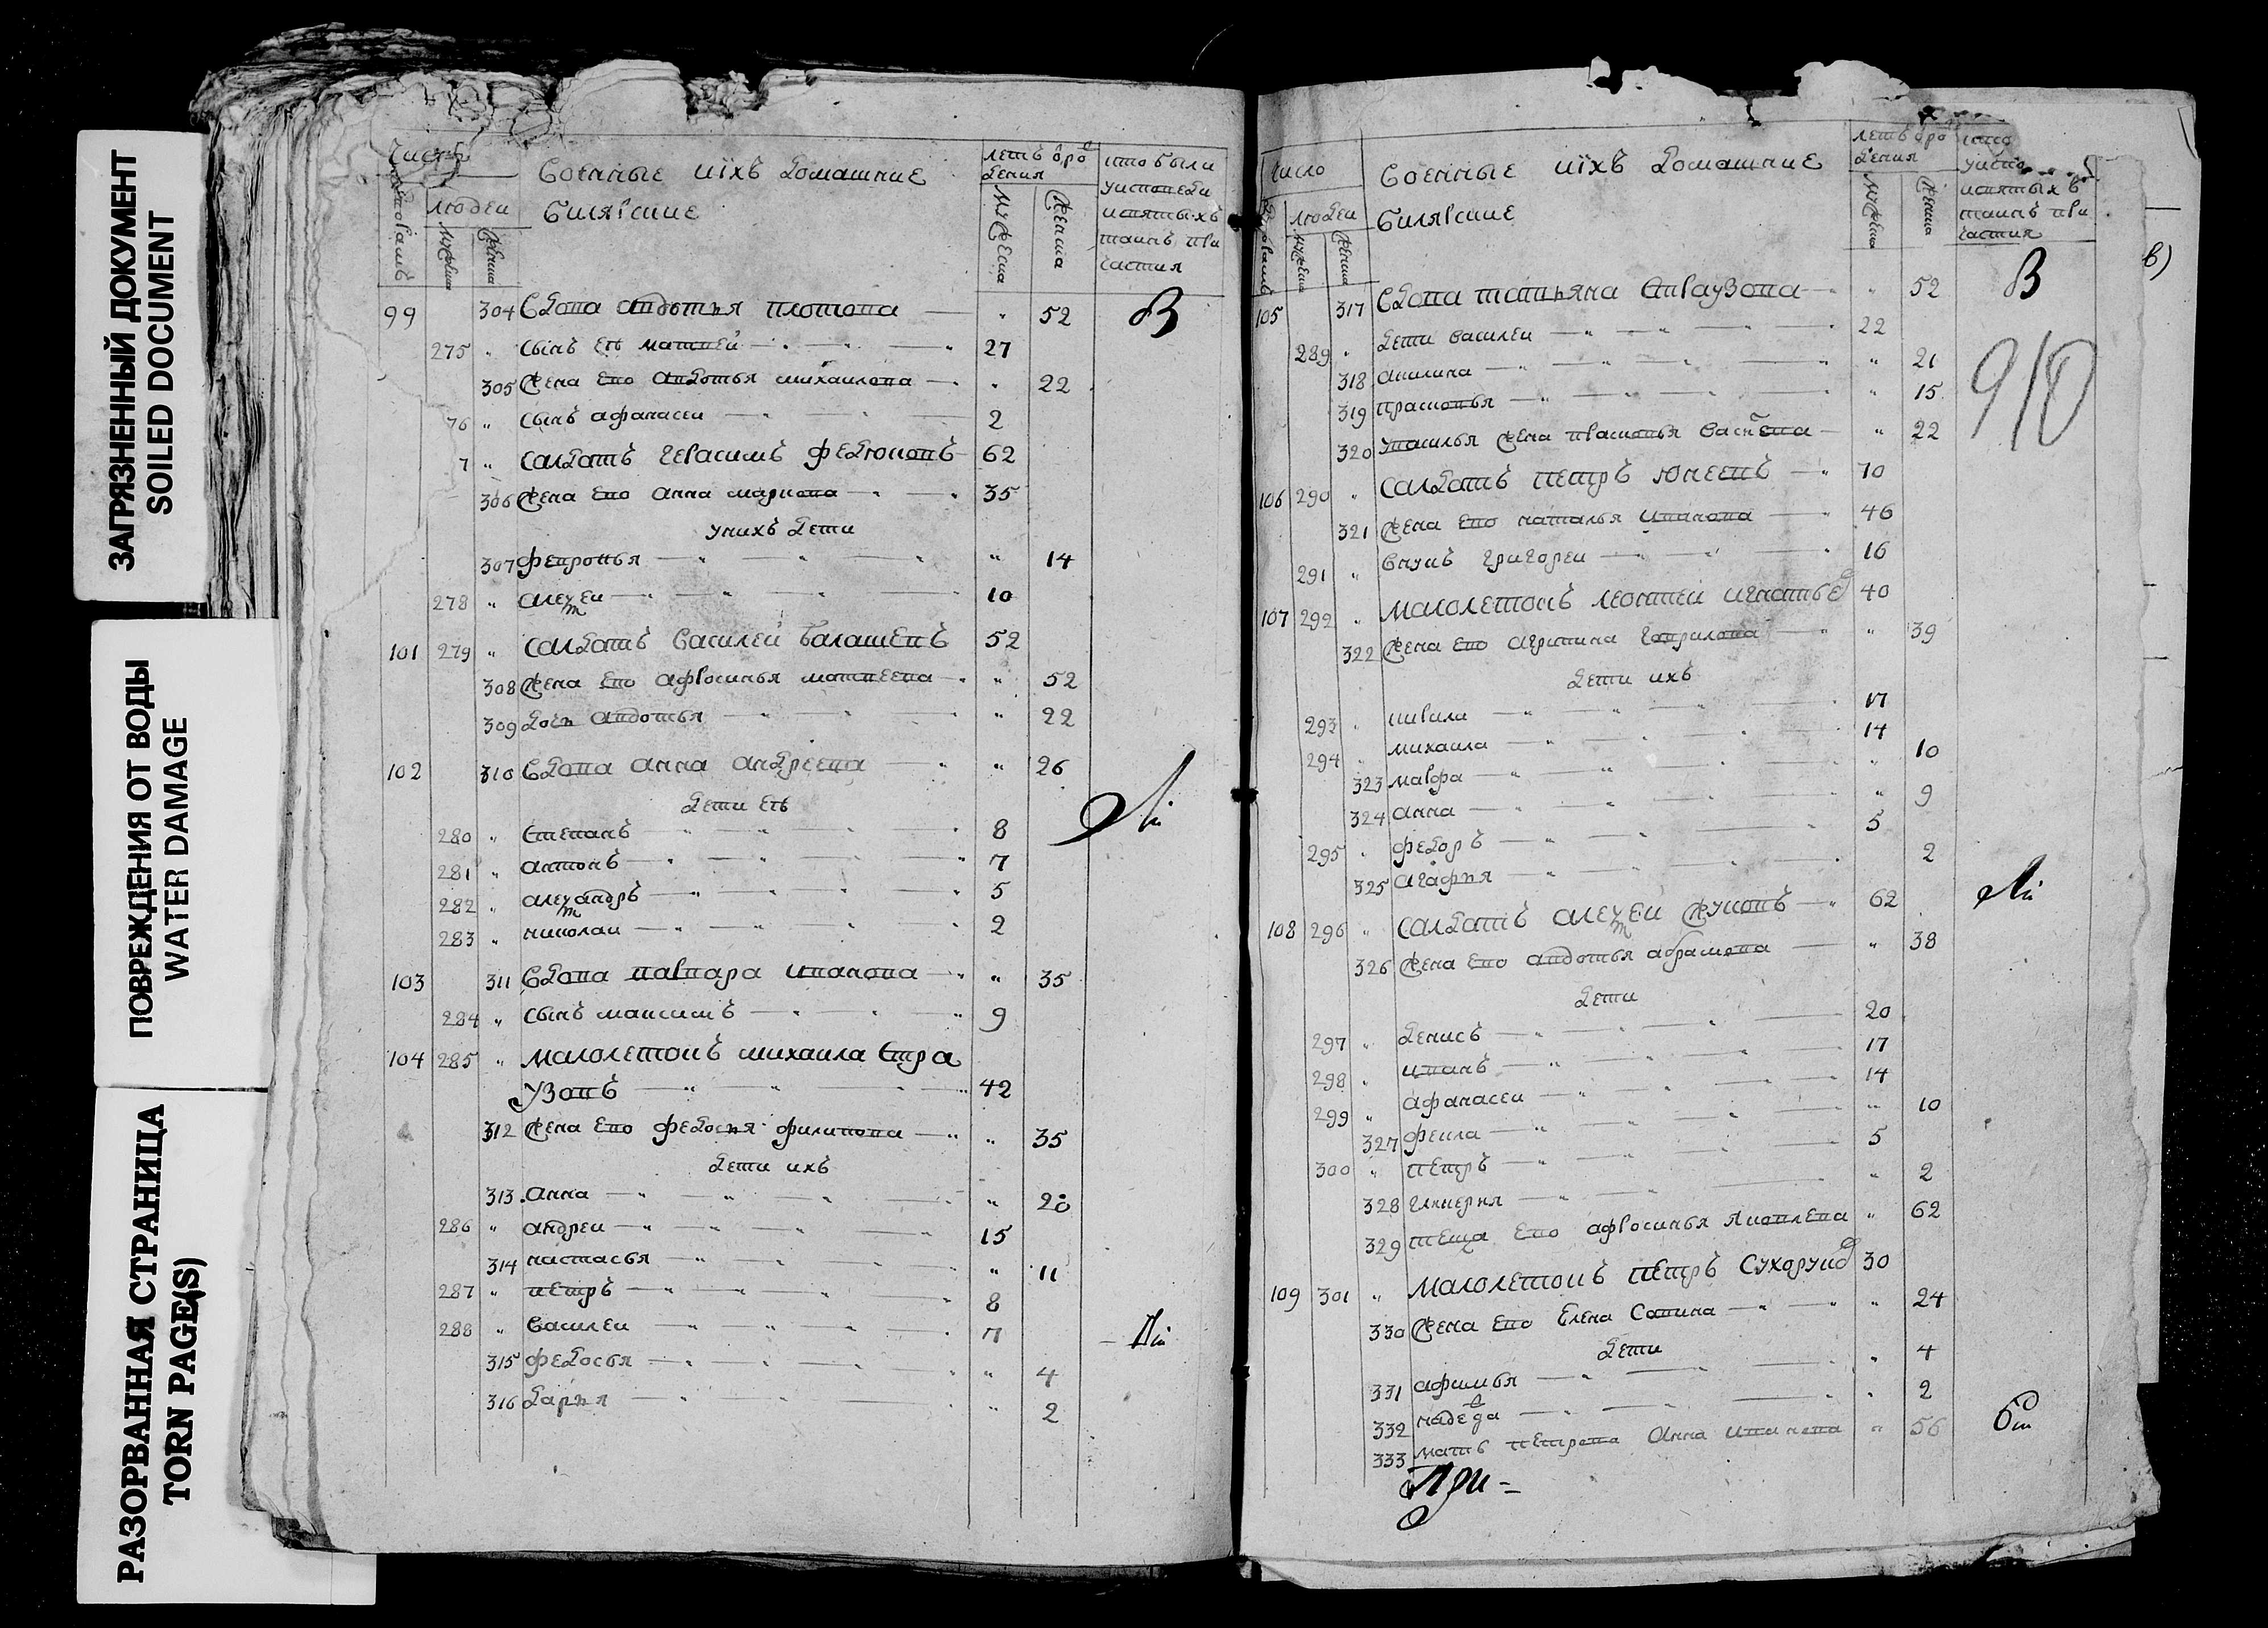 ЗАГРЯЗНЕННЫЙ ДОКУМЕНТ
SOILED DOCUMENT
ПОВРЕЖДЕНИЯ ОТ ВОДЫ
WATER DAMAGE
РАЗОРВАННАЯ СТРАНИЦА
TORN PAGE(S)
Число
людей
военные и ихъ домашние
билярские
летъ от рождения
мужеска
женска
кто были у исповеди и святыхъ таинъ причастия
99 304 вдова авдотья платова " 52 В
275 " сынъ ея матвей 27
305 жена ево авдотья михаилова " 22
76 " сынъ афанасеи 2
7 " салдатъ герасимъ федюковъ 62
306 жена ево анна маркова 35
у нихъ дети
307 февронья " 14
278 " алеѯеи 10
101 279 " салдатъ василеи балашевъ 52
308 жена ево афросинья матвеева " 52
309 дочь авдотья " 22
102 310 вдова анна андреева " 26
дети ея
280 " степанъ 8
281 " антонъ 7
282 " алеѯандръ 5
283 " николаи 2
103 311 вдова варвара иванова " 35
284 " сынъ максимъ 9
104 285 " малолетокъ михаила стра
узовъ 42
312 жена ево федосья филипова " 35
дети ихъ
313 анна " 20
286 " андреи 15
314 настасья " 11
287 " петръ 8
288 " василеи 7
315 федосья " 4
316 дарья " 2
Число
людеи
военные и ихъ домашние
билярские
мужеска
женска
105 317 вдова татьяна страузова " 52 В
289 " дети василеи 22
318 акилина " 21
319 прасковья " 15
910
320 у василья жена прасковья васильева " 22
106 290 " салдатъ петръ юнеевъ 70
321 жена ево наталья иванова 46
291 " внукъ григореи 16
107 292 " малолетокъ леонтеи игнатьев 40
322 жена ево агрипина гаврилова " 39
дети ихъ
293 " кирила 17
294 " михаила 14
323 марфа " 10
324 анна " 9
295 " федоръ 5
325 агафья 2
108 296 " салдатъ алеѯеи жуковъ 62
326 жена ево авдотья абрамова " 38
дети
297 " денисъ 20
298 " иванъ 17
299 " афанасеи 14
327 фекла " 10
300 " петръ 5
328 гликерия " 2
329 теща ево афросинья яковлева " 62
109 301 " малолетокъ петръ сухоруков 30
330 жена ево елена савина " 24
дети
331 афимья " 4
332 надежда " 2
333 мать петрова анна иванова " 56
При=